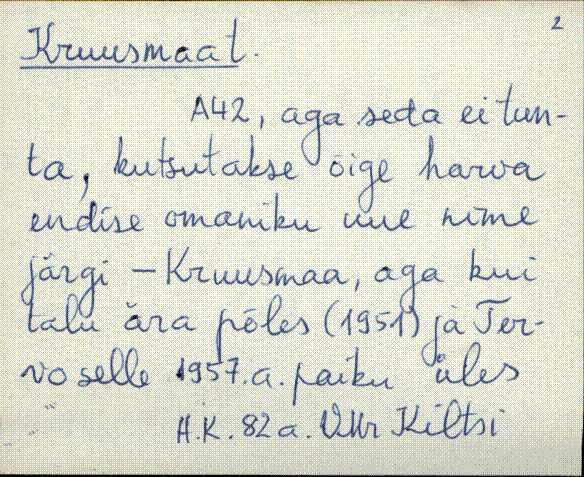 2
Kruusmaa t.
A42, aga seda ei tun-
ta, kutsutakse õige harva
endise omaniku uue nime
järgi – Kruusmaa, aga kui
talu ära põles (1951) ja Ter-
vo selle 1957.a. paiku üles
H.K. 82 a. VMr Kiltsi